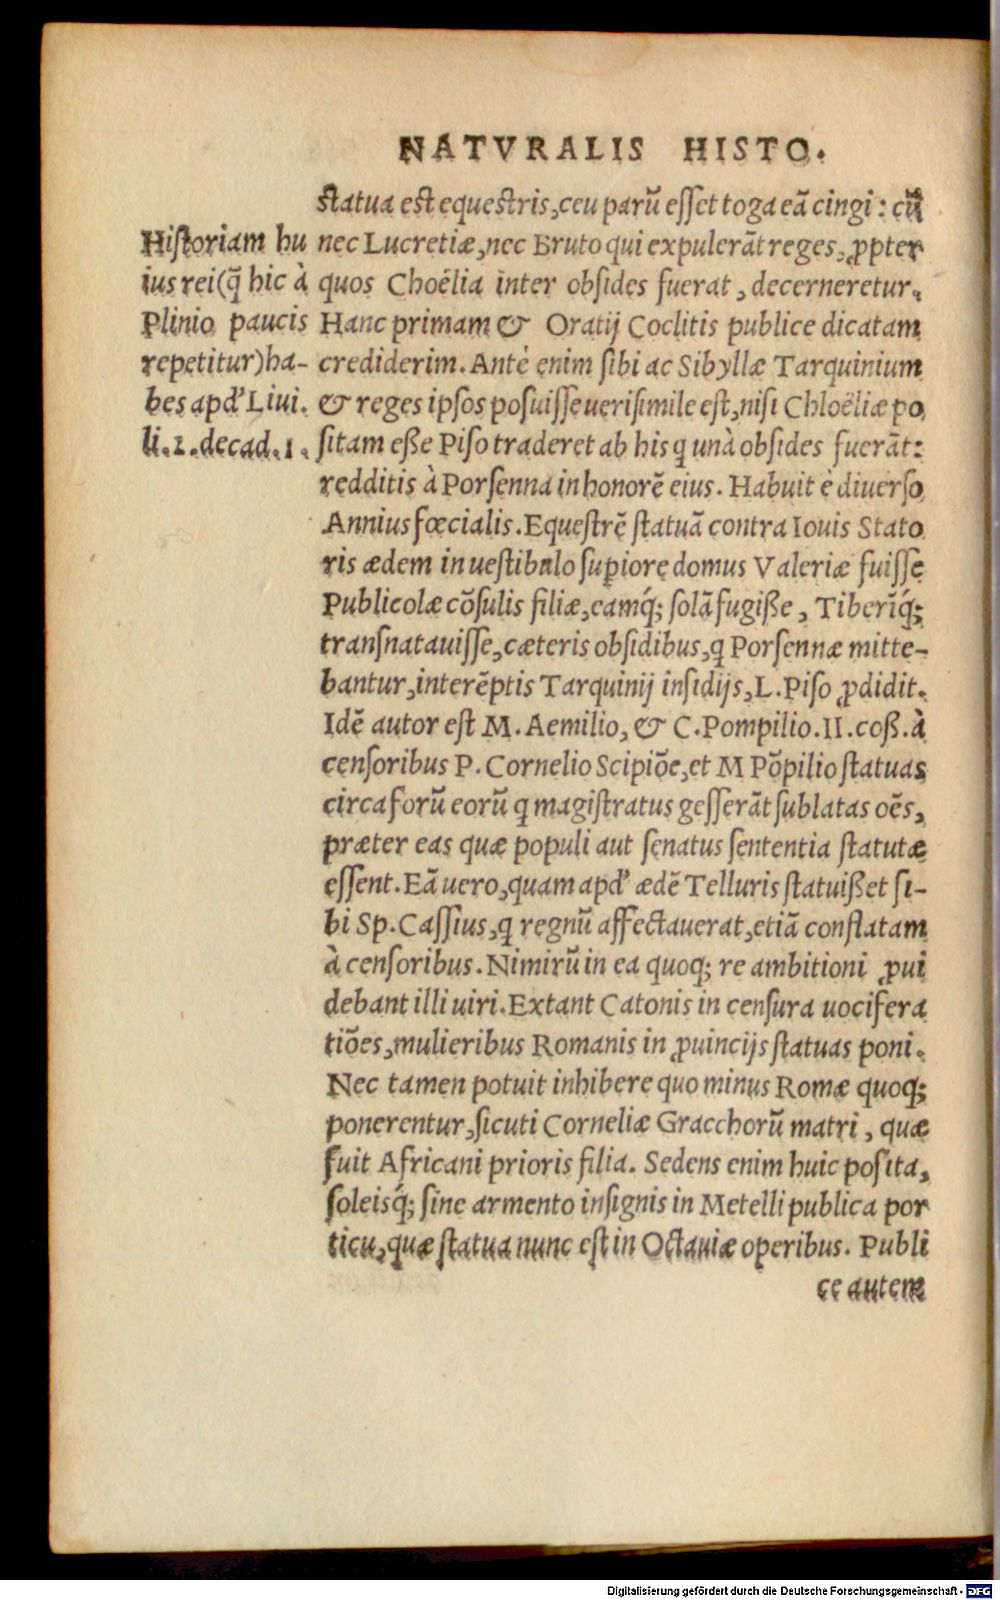 NATVRALIS HISTO.
statua est equestris, ceu parū esset toga eā cingi: cū
nec Lucretiæ, nec Bruto qui expulerāt reges, ꝓpter
quos Choëlia inter obsides fuerat, decerneretur.
Hanc primam & Oratij Coclitis publice dicatam
crediderim. Antè enim sibi ac Sibyllæ Tarquinium
& reges ipsos posuisse uerisimile est, nisi Chloëliæ po
sitam eße Piso traderet ab his q unà obsides fuerāt:
redditis à Porsenna in honorē eius. Habuit è diuerso
Annius fœcialis. Equestrē statuā contra Iouis Stato
ris ædem in uestibulo supiore domus Valeriæ fuisse
Publicolæ cōsulis filiæ, eamq́; solā fugiße, Tiberīq́;
transnatauisse, cæteris obsidibus, q Porsennæ mitte-
bantur, interēptis Tarquinij insidijs, L. Piso ꝓdidit.
Idē autor est M. Aemilio, & C. Pompilio. II. coß. à
censoribus P. Cornelio Scipiōe, et M Pōpilio statuas
circa forū eorū q magistratus gesserāt sublatas oēs,
præter eas quæ populi aut senatus sententia statutæ
essent. Eā uero, quam apd' ædē Telluris statuißet si-
bi Sp. Cassius, q regnū affectauerat, etiā conflatam
à censoribus. Nimirū in ea quoq; re ambitioni ꝓui
debant illi uiri. Extant Catonis in censura uocifera
tiōes, mulieribus Romanis in ꝓuincijs statuas poni.
Nec tamen potuit inhibere quo minus Romæ quoq;
ponerentur, sicuti Corneliæ Gracchorū matri, quæ
fuit Africani prioris filia. Sedens enim huic posita,
soleisq́; sine armento insignis in Metelli publica por
ticu, quæ statua nunc est in Octauiæ operibus. Publi
ce autem
Historiam hu
ius rei (q̄ hic à
Plinio paucis
repetitur) ha-
bes apd' Liui.
li. 2. decad. 1.
Digitalisierung gefördert durch die Deutsche Forschungsgemeinschaft - DFG